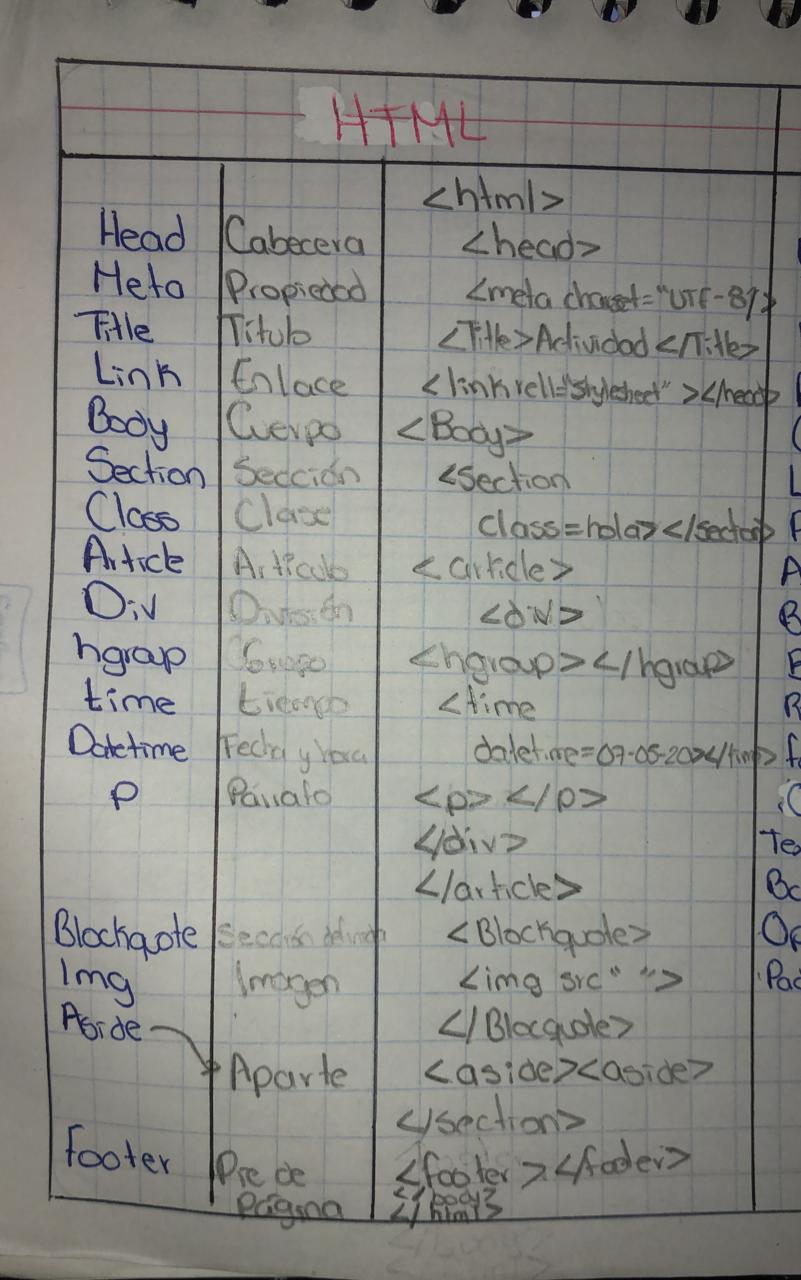 HTML
<html>
Head Cabecera <head>
Meta Propiedad <meta charset="UTF-8">
Title Titulo <Title>Actividad</Title>
Link Enlace <link rell="stylesheet" ></head>
Body Cuerpo <Body>
Section Sección <Section
Class Clase class=hola></section>
Article Artículo <article>
Div División <div>
hgrap Grupo <hgrap></hgrap>
time tiempo <time
Datetime Fecha y hora datetime=07-05-202</time>
P Párrafo <p> </p>
</div>
</article>
Blockquote Sección definida <Blockquote>
Img Imagen <img src" ">
Aside </Blocquote>
Aparte <aside><aside>
</section>
footer Pie de <footer></footer>
Página </body>
</html>